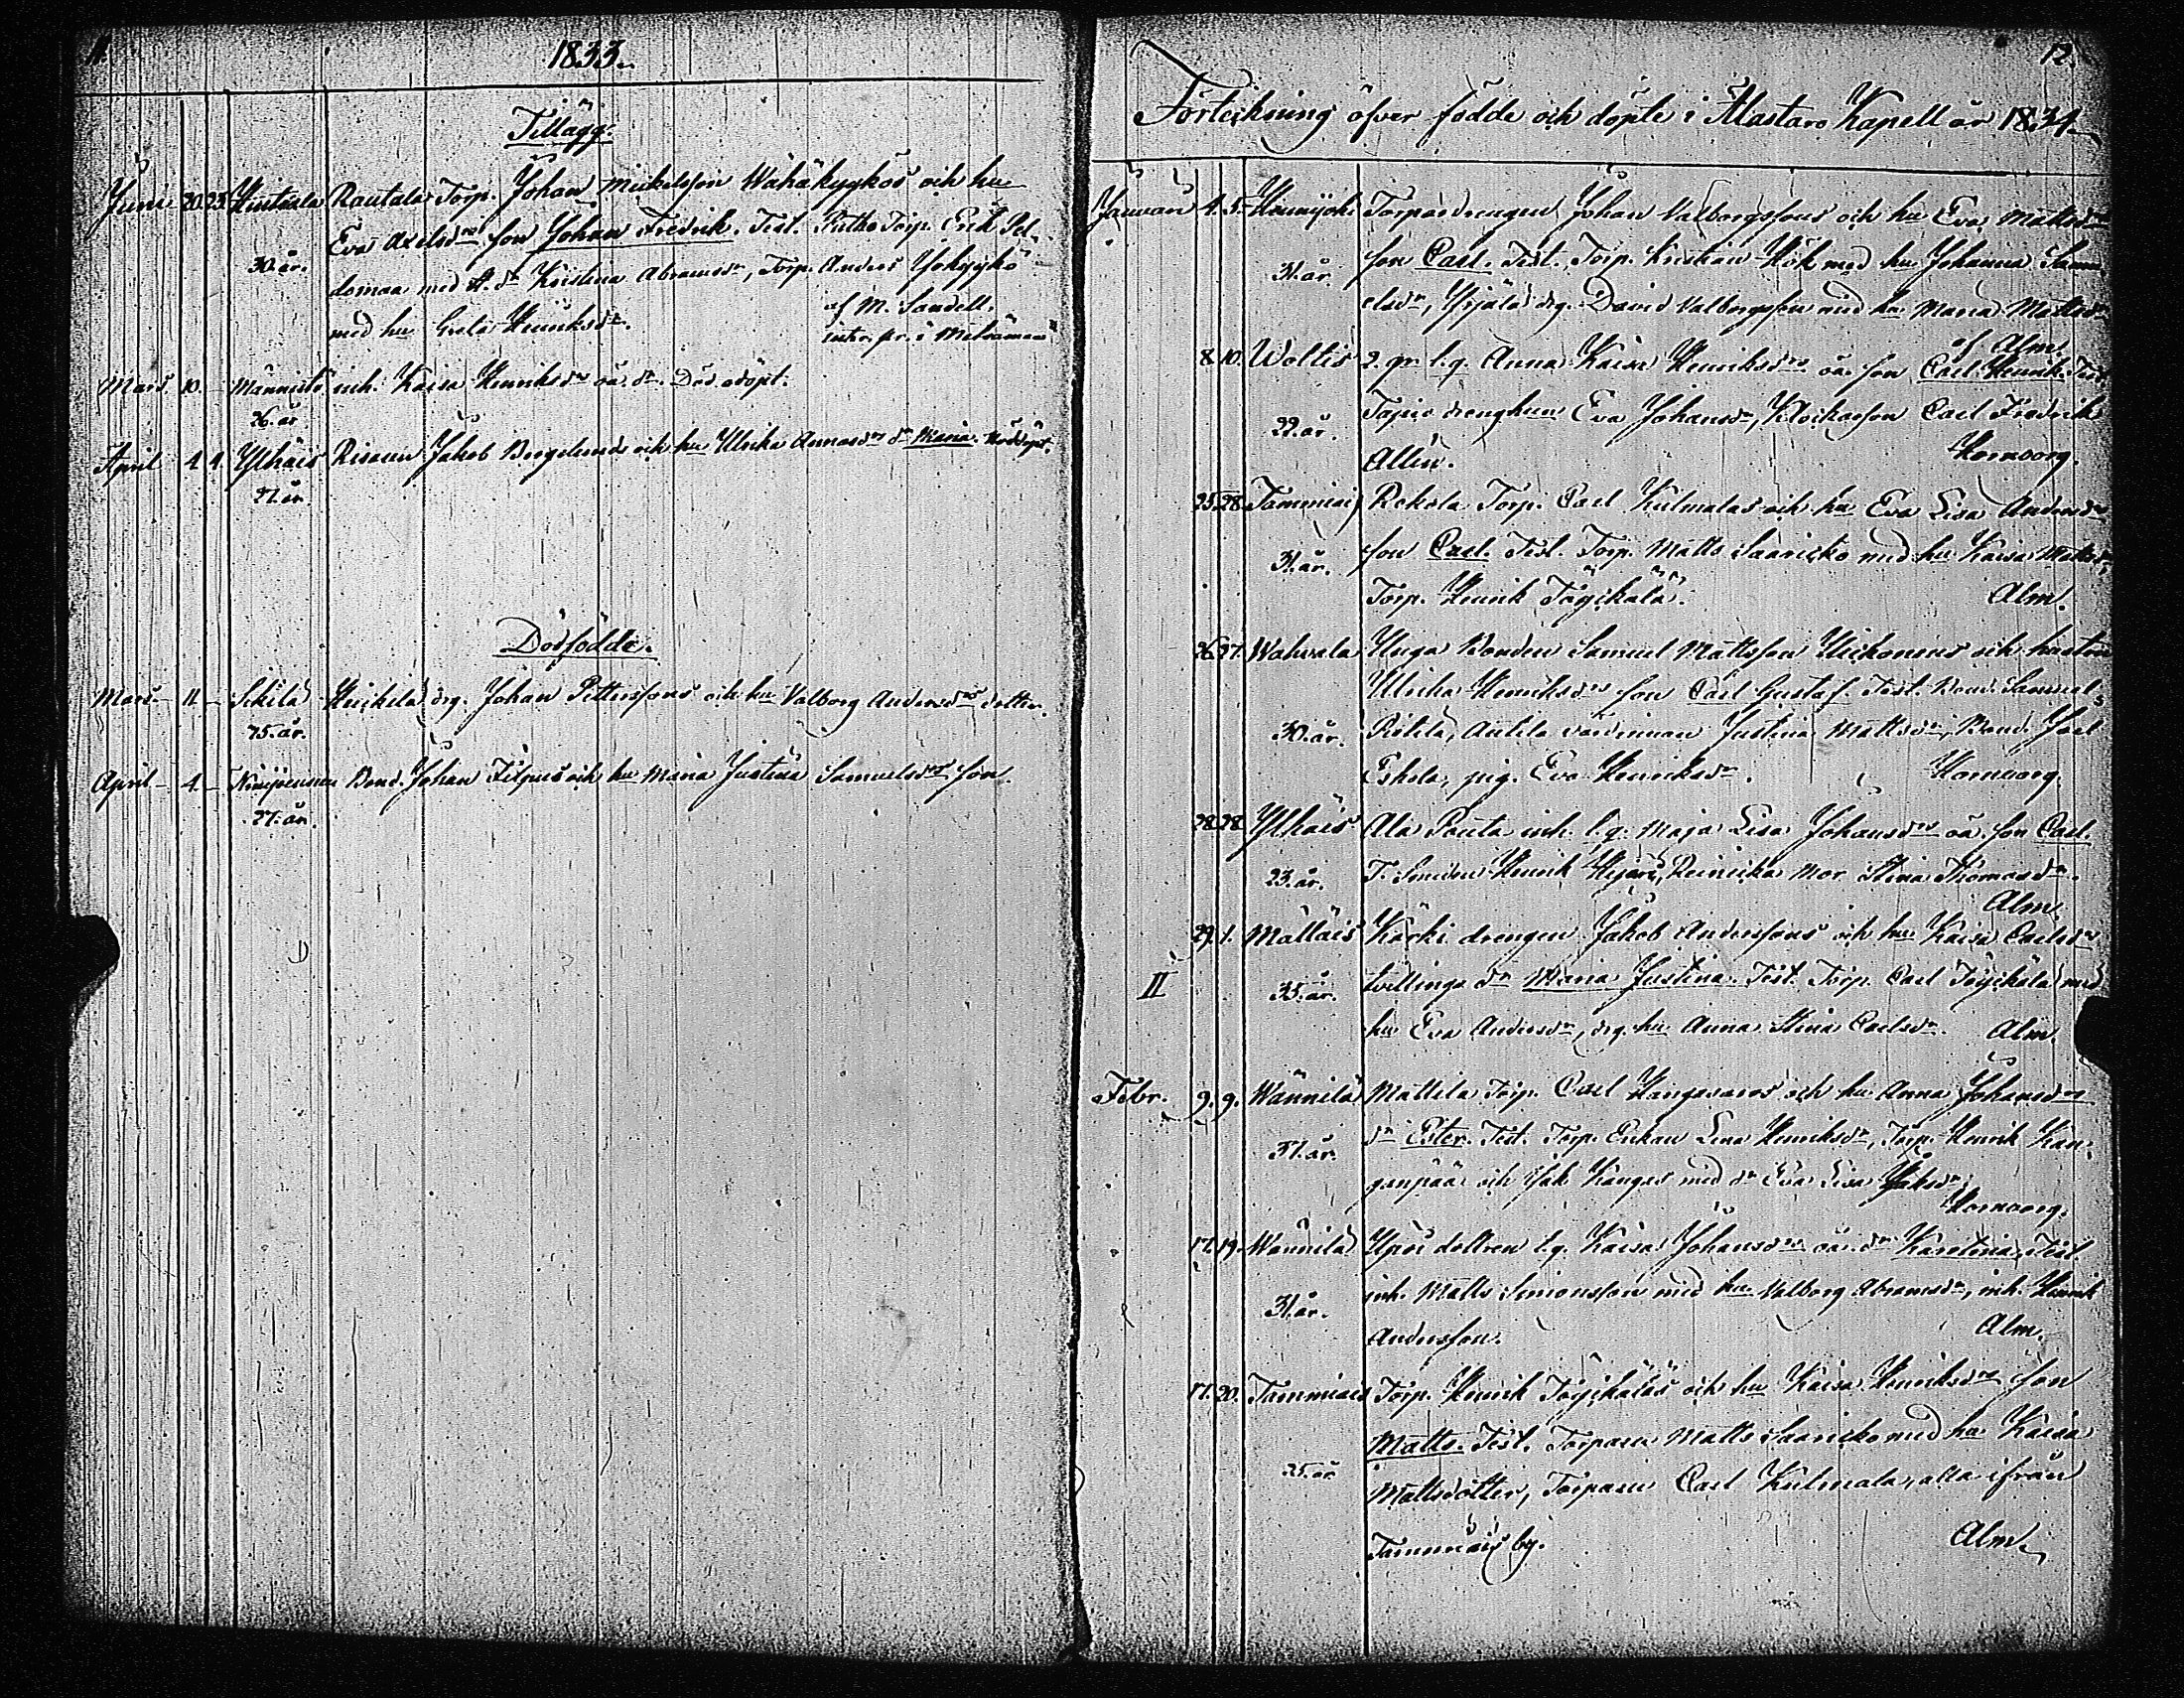 11.
1833.
Tillägg.
Juni 20. 23. Rautala Torp. Johan Mickelsson Wähäkyykös och hu
Eva Axelsdrs son Johan Fredrik. Test. Torp. Erik Pel-
30. år.
domaa med dr Kristina Abramsdr, Torp. Anders Yökyykö
med hu Greta Henriksdr.
af M. Sandell.
Mars. 10. Männistö inh. Kaisa Henriksdrs oä. dr. Död odöpt.
26. år
April 4. 4. Ylhäis Risaun Jakob Berglunds och hu Ulrika Annasdrs dr Maria. Nöddöpt.
27. år.
Dödfödde.
Mars 11. drg. Johan Pettersfons och hu Valborg Andersdrs dotter.
April 4. Bond. Johan och hu Maria Justina Samuelsdrs son.
27. år.
12.
Förteckning öfver födde och döpte i Alastaro Kapell år 1834.
Januari 4. 5. Torparedrengen Johan Valborgsfons och hu Eva Mattsdrs
son Carl. Test. Torp. Kristian Hök med hu Johanna Samu
31. år.
elsdr, Yrjälä drg. David Valborgsfon med hu Maria Mattsdr
af Alm.
8. 10. Woltis 2. gr. l. q. Anna Kaisa Henriksdrs oä. son Carl Henrik. Test.
Tapio drenghun Eva Johansdr, Klockarson Carl Fredrik
22. år.
Allén.
Hornborg.
25. 28. Tammiais Rekola Torp. Carl Kulmalas och hu Eva Lisa Andersdrs
son Carl. Test. Torp. Matts Saaristo med hu Kaisa Mattsdr,
31. år.
Torp. Henrik Töyikälä.
Alm.
26. 27. Wahvala Uuga Bonden Samuel Mattsson Heikonens och hustru
Ulrika Henriksdrs son Carl Gustaf. Test. Bond. Samuel
30. år. Ristilä, Antila värdinnan Justina Mattsdr, Bond. Joel
Eskola, pig. Eva Henriksdr.
Hornborg.
28. 28. Ylhäis Ala Pauta inh. l. q. Maja Lisa Johansdrs oä. son Carl.
23. år. T. Smeden Henrik Reinikka Mor Stina Thomasdr.
Alm.
29. 1. Mälläis Kärki drengen Jakob Andersfons och hu Kaisa Carlsdrs
II
35. år. tvillings dr Maria Justina. Test. Torp. Carl Töyikälä med
hu Eva Andersdr, drg. hu Anna Stina Carlsdr.
Alm.
Febr. 9. 9. Wännilä Mattila Torp. Carl Kangasaros och hu Anna Johansdrs
37. år. dr Ester. Test. Torp. Enkan Lena Henriksdr, Torp. Henrik Kan-
ganpää och Jak Kangas med dr Eva Lisa Jaksdr.
Hornborg.
17. 19. Wännilä Upoi dottren l. q. Kaisa Johansdrs oä. dr Karolina. Test
31. år. inh. Matts Simonsson med hu Valborg Abramsdr, inh. Henrik
Andersfon.
Alm.
17. 20. Tammiais Torp. Henrik Töyikäläs och hu Kaisa Henriksdrs son
Matts. Test. Torparen Matts Saaristo med hu Kaisa
25. år
Mattsdotter, Torparen Carl Kulmala, alla ifrån
Tammiais by.
Alm.